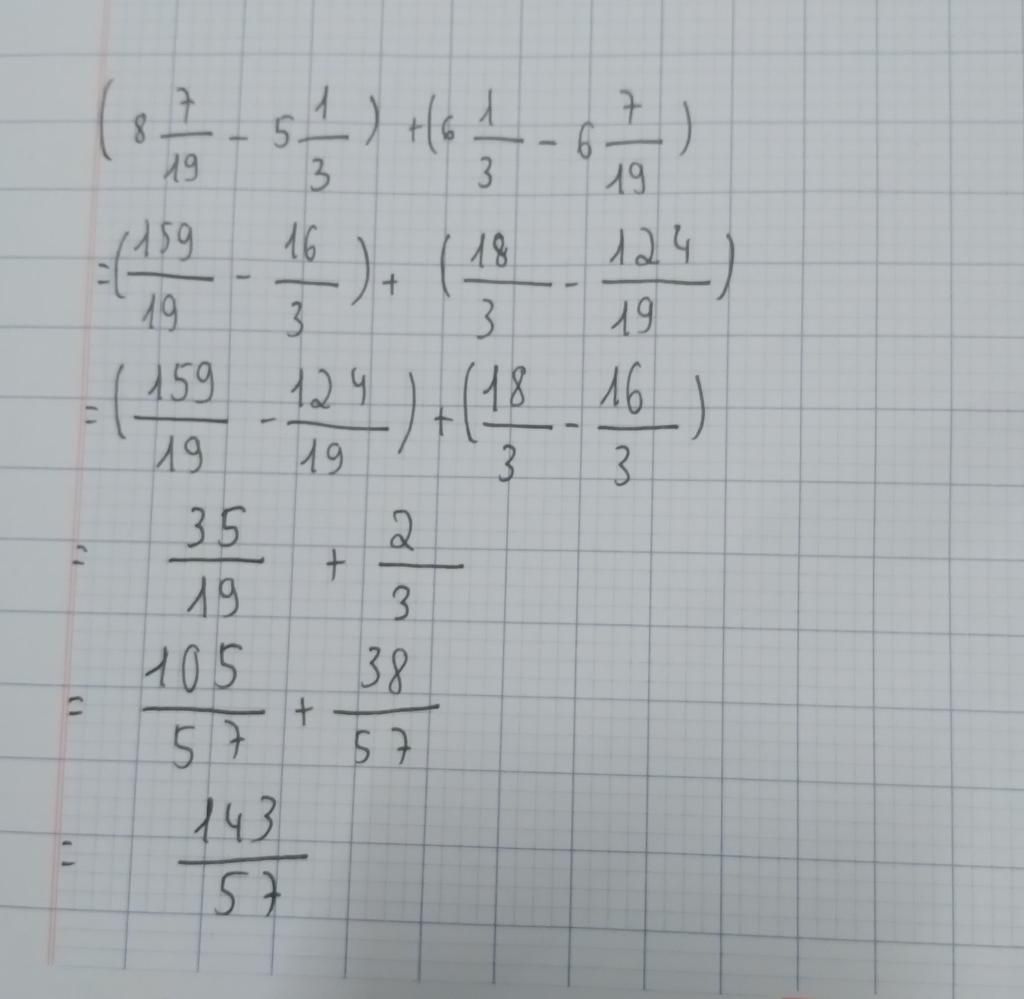 (8 7/19 - 5 1/3) + (6 1/3 - 6 7/19)
= (159/19 - 16/3) + (18/3 - 124/19)
= (159/19 - 124/19) + (18/3 - 16/3)
= 35/19 + 2/3
= 105/57 + 38/57
= 143/57